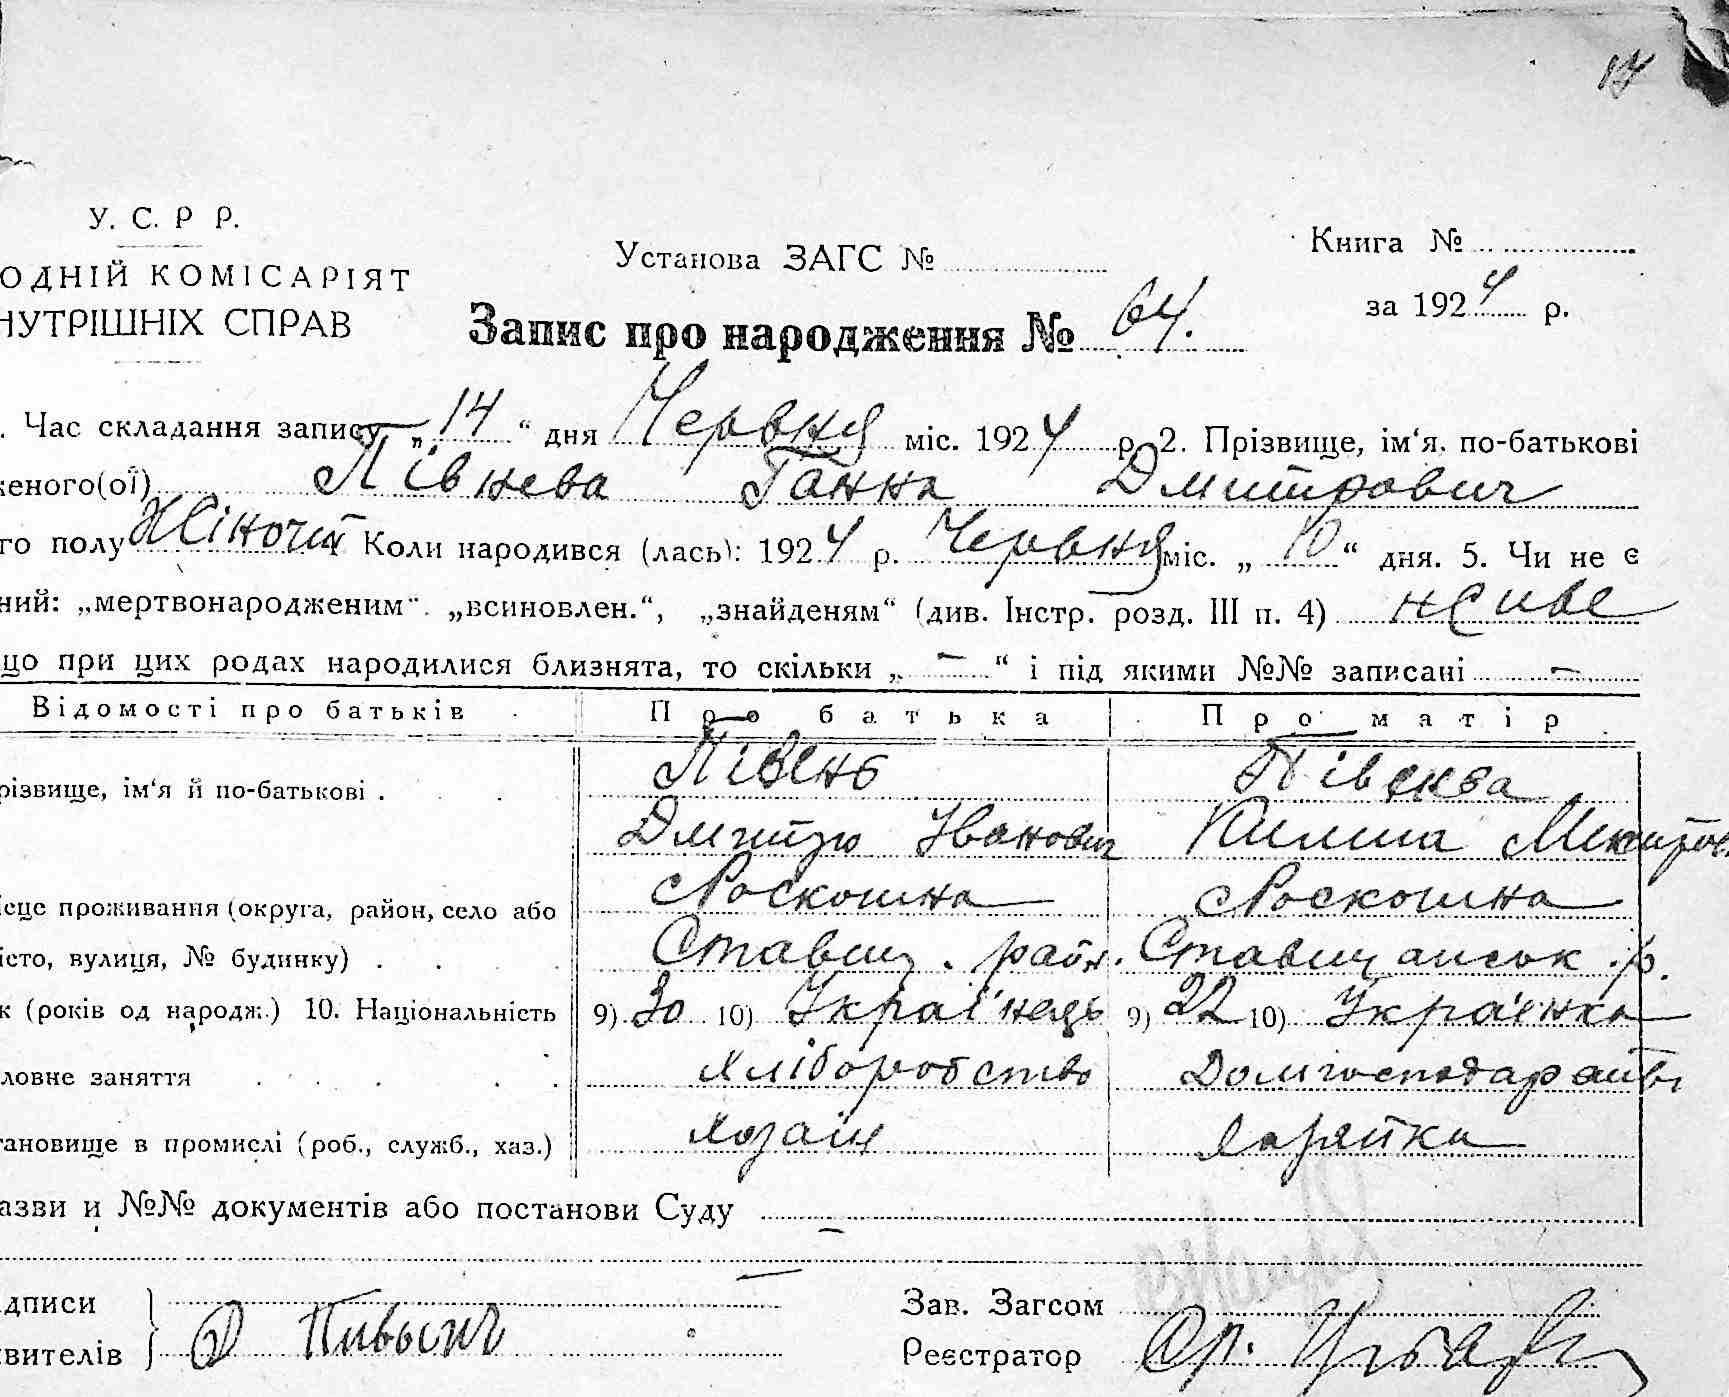 17
У. С. Р Р.
ОДНІЙ КОМІСАРІЯТ
НУТРІШНІХ СПРАВ
Установа ЗАГС №
Книга №
за 1924 р.
Запис про народження № 64.
. Час складання запису „14“ дня Червня міс. 1924 р. 2. Прізвище, ім‘я, по-батькові
женого(ої) Півнева Ганна Дмитрович
го полу Жіночий Коли народився (лась): 1924 р. Червня міс. „10“ дня. 5. Чи не є
ний: „мертвонародженим“. „всиновлен.“, „знайденям“ (див. Інстр. розд. III п. 4) живе
цо при цих родах народилися близнята, то скільки „ — “ і під якими №№ записані —
Відомості про батьків Про батька Про матір
різвище, ім‘я й по-батькові . Півень Півнева
Дмитро Іванович Килина
Роскошна Роскошна
ісце проживання (округа, район, село або
істо, вулиця, № будинку) . Ставищ. райн. Ставищанськ. р.
к (років од народж.) 10. Національність 9) 30 10) Украї́нець 9) 22 10) Украї́нка
ловне заняття Хліборобство
тановище в промислі (роб., служб., хаз.) Хозаїн Хозяйка
азви и №№ документів або постанови Суду —
дписи
Зав. Загсом
вителів
Реєстратор